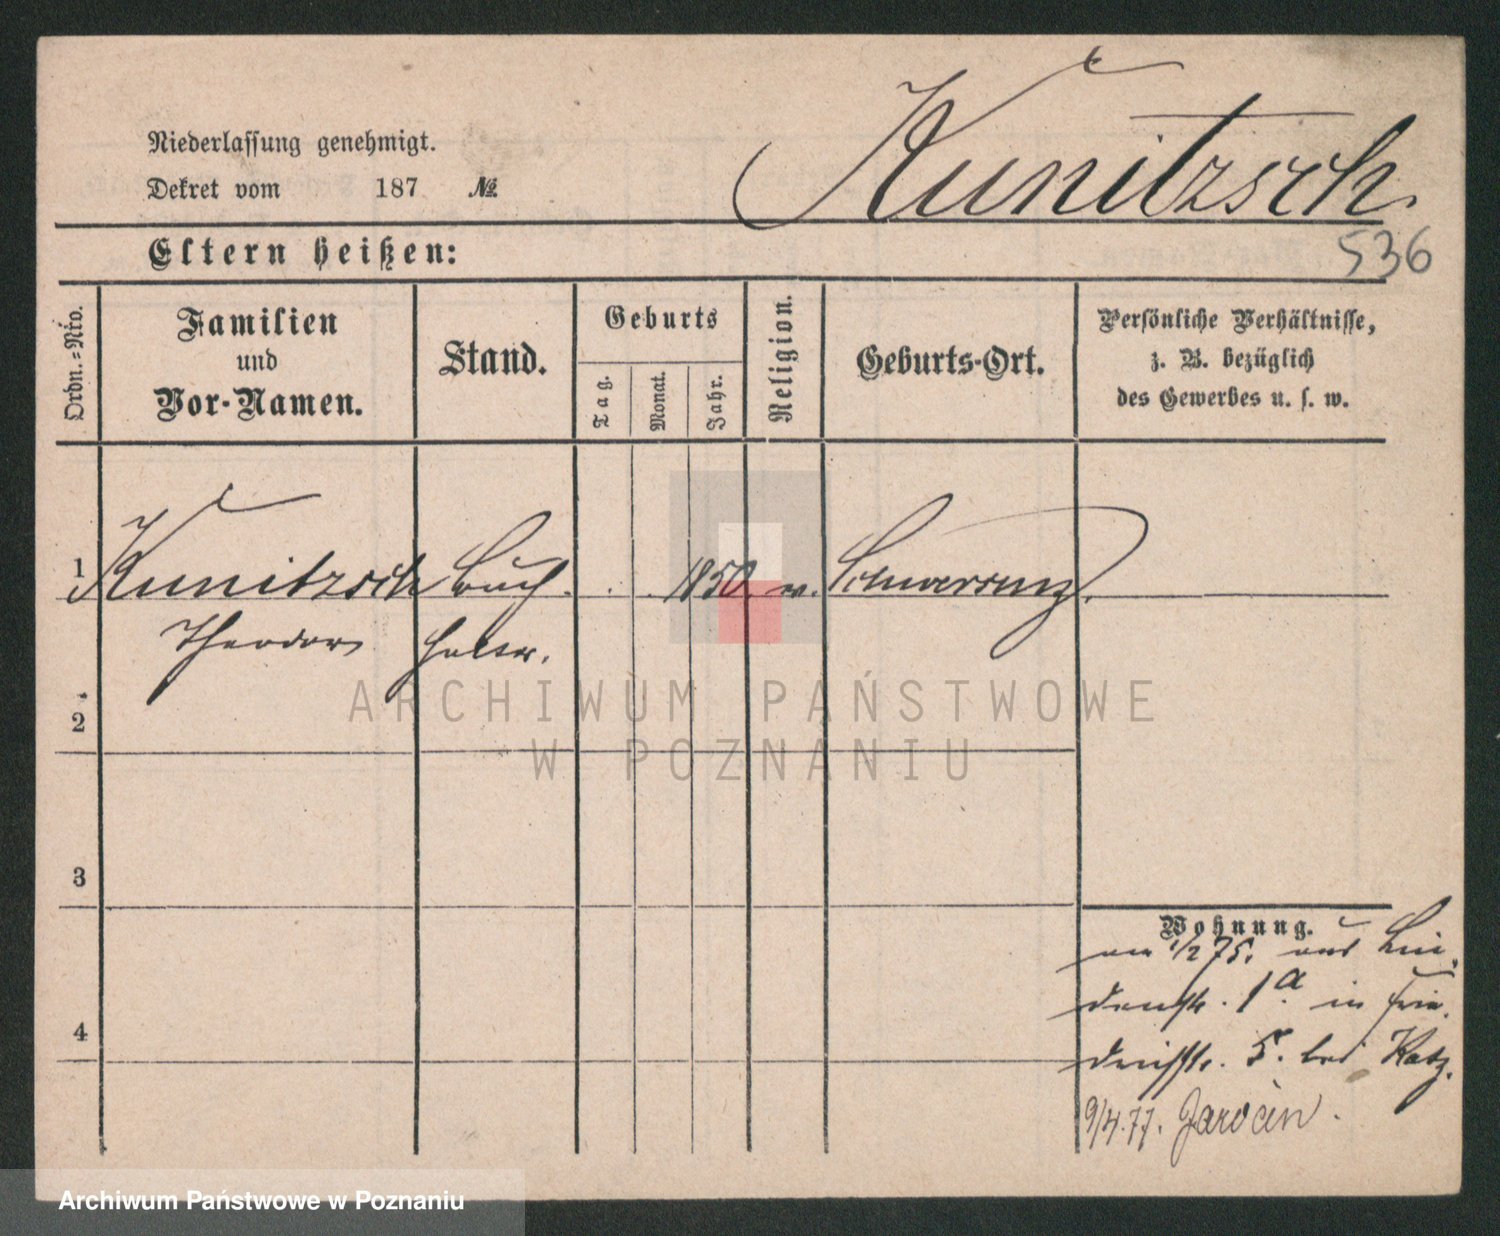 Niederlassung genehmigt.
Dekret vom 187 №
Kunitzsch
536
Eltern heißen:
Ordn.-Nro.
Familien und Vor-Namen.
Stand.
Geburts
Tag.
Monat.
Jahr.
Religion.
Geburts-Ort.
Persönliche Verhältnisse,
z. B. bezüglich
des Gewerbes u. s. w.
1 Kunitzsch Buch 1850 Schwersenz.
Theodor halter.
2
3
4
Wohnung.
1/2 75. aus Lin
denstr. 1a. in Frie
drichstr. 5. bei Katz.
9/4.77. Jarocin.
ARCHIWUM PAŃSTWOWE
W POZNANIU
Archiwum Państwowe w Poznaniu